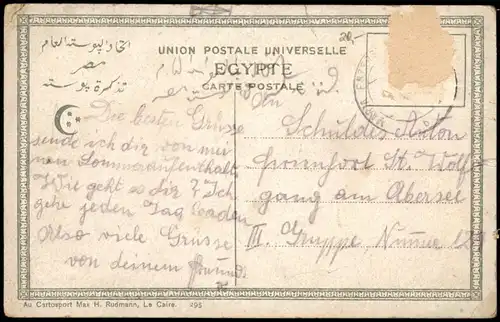 20,-
اتحاد البوسته العام
مصر
تذكرة بوسته
UNION POSTALE UNIVERSELLE
EGYPTE
CARTE POSTALE
Die besten Grüsse
sende ich dir von mei-
nen Sommeraufenthalt.
Wie geht es dir? Ich
gehe jeden Tag baden
Also viele Grüsse
von deinem Freund
Schuldes Anton
St. Wolf-
gang am Abersee
III. Gruppe Numer
Au Cartosport Max H. Rudmann, Le Caire. 295